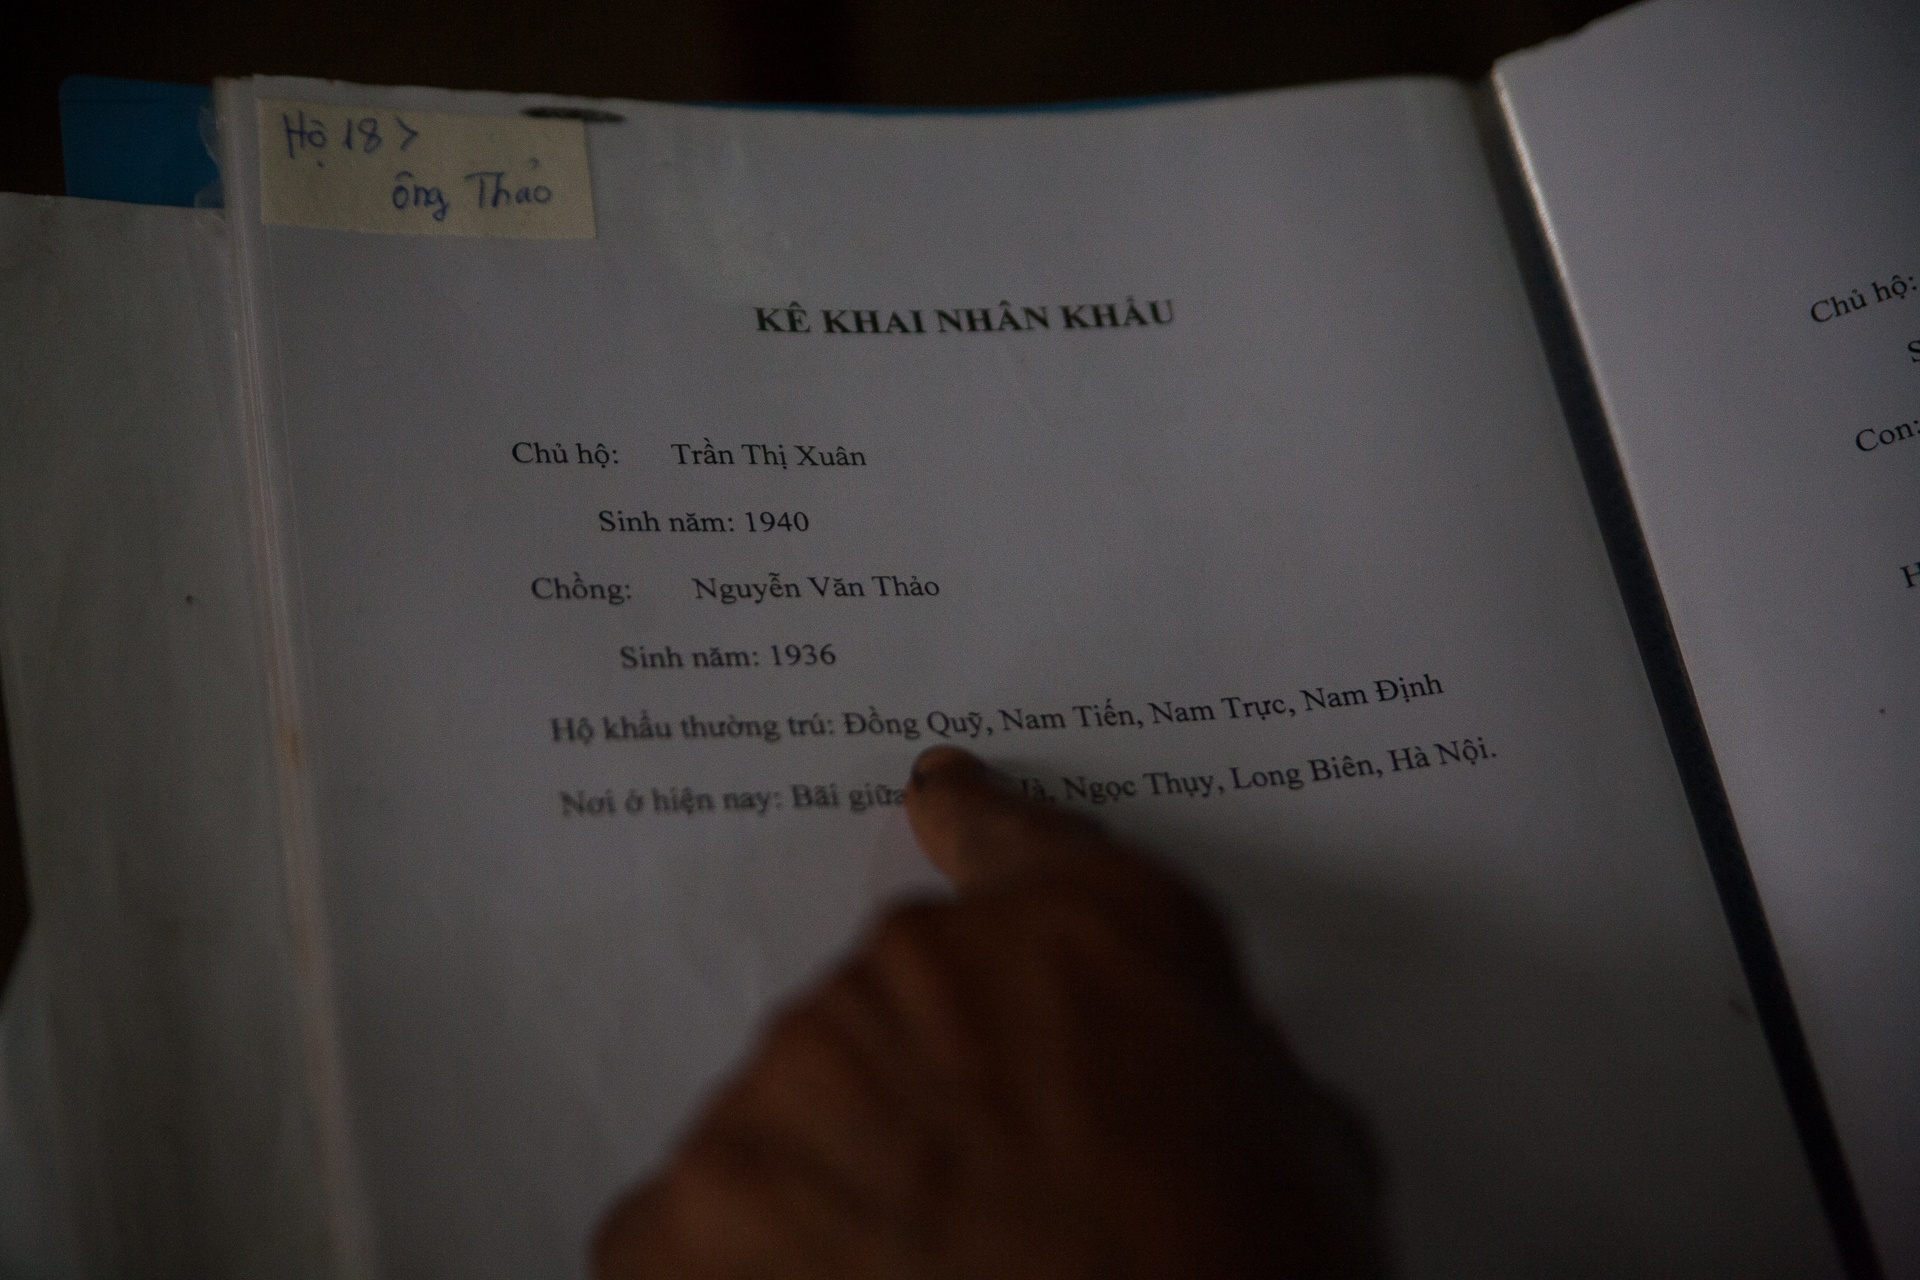 Hộ 18 >
ông Thảo
KÊ KHAI NHÂN KHẨU
Chủ hộ: Trần Thị Xuân
Sinh năm: 1940
Chồng: Nguyễn Văn Thảo
Sinh năm: 1936
Hộ khẩu thường trú: Đồng Quỹ, Nam Tiến, Nam Trực, Nam Định
Nơi ở hiện nay: Bãi giữa Ngọc Thụy, Long Biên, Hà Nội.
Chủ hộ:
Con: